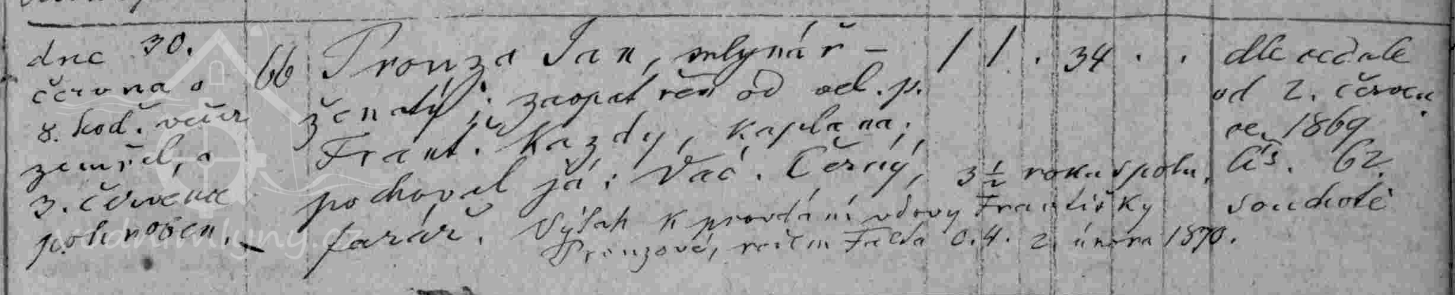 dne 30. 66 Pronza Jan, mlynář – / / . 34 . . dle cedule
června o ženatý; zaopatřen od vel. p. od 2. červen.
8. hod. večer Frant. Kazdy, kaplana; 1869
zemřel, a pochoval já: Vác. Černý, 3 ½ roku spolu. čís. 62.
3. července farář. Výtah k provdání vdovy Františky souchotě
pohrben. Pronzové, 2. února 1870.
vodnimlyny.cz